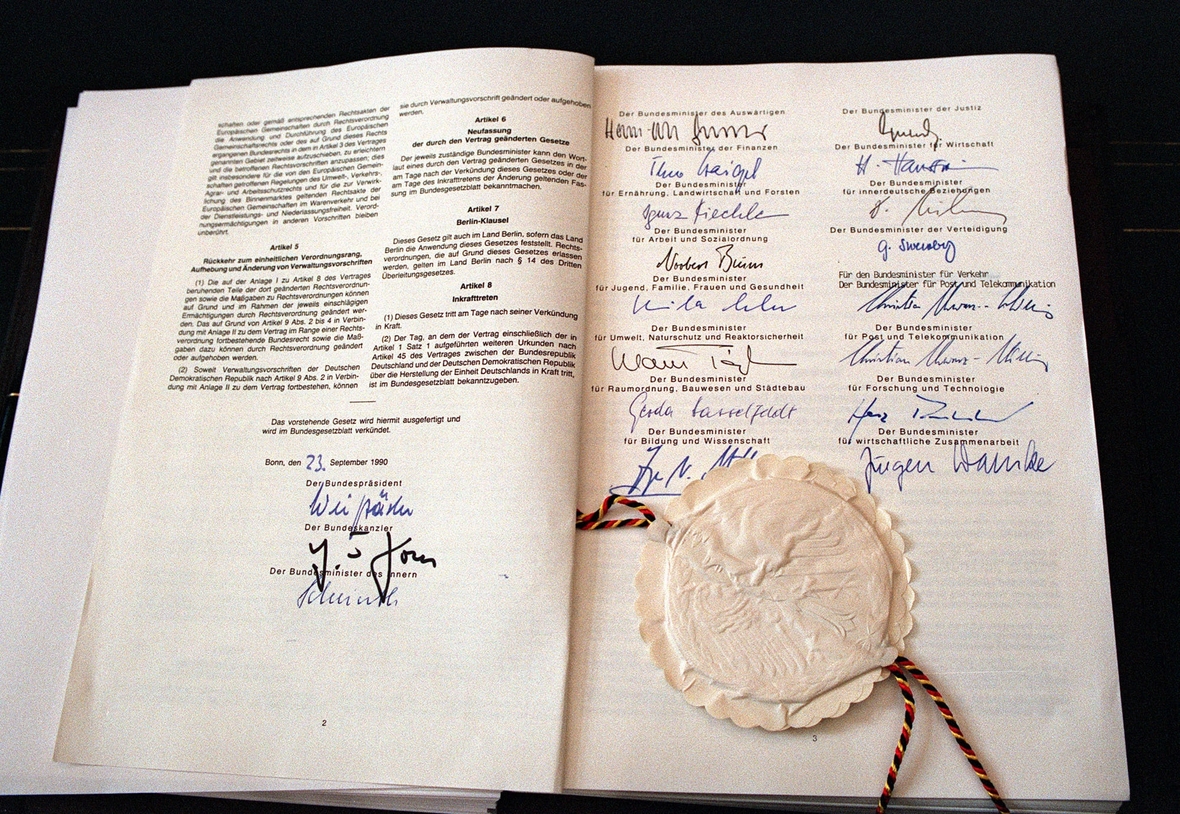 schalten oder gemäß entsprechenden Rechtsakten der
Europäischen Gemeinschaften durch Rechtsverordnung
die Anwendung und Durchführung des Europäischen
Gemeinschaftsrechts oder des auf Grund dieses Rechts
ergangenen Bundesrechts in dem in Artikel 3 des Vertrages
genannten Gebiet zeitweise aufzuschieben, zu erleichtern
und die betroffenen Rechtsvorschriften anzupassen; dies
gilt insbesondere für die von den Europäischen Gemein-
schaften getroffenen Regelungen des Umwelt-, Verkehrs-,
Agrar- und Arbeitsschutzrechts und für die zur Verwirk-
lichung des Binnenmarktes geltenden Rechtsakte der
Europäischen Gemeinschaften im Warenverkehr und bei
der Dienstleistungs- und Niederlassungsfreiheit. Verord-
nungsermächtigungen in anderen Vorschriften bleiben
unberührt.
Artikel 5
Rückkehr zum einheitlichen Verordnungsrang,
Aufhebung und Änderung von Verwaltungsvorschriften
(1) Die auf der Anlage I zu Artikel 8 des Vertrages
beruhenden Teile der dort geänderten Rechtsverordnun-
gen sowie die Maßgaben zu Rechtsverordnungen können
auf Grund und im Rahmen der jeweils einschlägigen
Ermächtigungen durch Rechtsverordnung geändert wer-
den. Das auf Grund von Artikel 9 Abs. 2 bis 4 in Verbin-
dung mit Anlage II zu dem Vertrag im Range einer Rechts-
verordnung fortbestehende Bundesrecht sowie die Maß-
gaben dazu können durch Rechtsverordnung geändert
oder aufgehoben werden.
(2) Soweit Verwaltungsvorschriften der Deutschen
Demokratischen Republik nach Artikel 9 Abs. 2 in Verbin-
dung mit Anlage II zu dem Vertrag fortbestehen, können
sie durch Verwaltungsvorschrift geändert oder aufgehoben
werden.
Artikel 6
Neufassung
der durch den Vertrag geänderten Gesetze
Der jeweils zuständige Bundesminister kann den Wort-
laut eines durch den Vertrag geänderten Gesetzes in der
am Tage nach der Verkündung dieses Gesetzes oder der
am Tage des Inkrafttretens der Änderung geltenden Fas-
sung im Bundesgesetzblatt bekanntmachen.
Artikel 7
Berlin-Klausel
Dieses Gesetz gilt auch im Land Berlin, sofern das Land
Berlin die Anwendung dieses Gesetzes feststellt. Rechts-
verordnungen, die auf Grund dieses Gesetzes erlassen
werden, gelten im Land Berlin nach § 14 des Dritten
Überleitungsgesetzes.
Artikel 8
Inkrafttreten
(1) Dieses Gesetz tritt am Tage nach seiner Verkündung
in Kraft.
(2) Der Tag, an dem der Vertrag einschließlich der in
Artikel 1 Satz 1 aufgeführten weiteren Urkunden nach
Artikel 45 des Vertrages zwischen der Bundesrepublik
Deutschland und der Deutschen Demokratischen Republik
über die Herstellung der Einheit Deutschlands in Kraft tritt,
ist im Bundesgesetzblatt bekanntzugeben.
Das vorstehende Gesetz wird hiermit ausgefertigt und
wird im Bundesgesetzblatt verkündet.
Bonn, den 23. September 1990
Der Bundespräsident
Der Bundeskanzler
Der Bundesminister des Innern
2
Der Bundesminister des Auswärtigen
Der Bundesminister der Finanzen
Theo Waigel
Der Bundesminister
für Ernährung, Landwirtschaft und Forsten
Ignaz Kiechle
Der Bundesminister
für Arbeit und Sozialordnung
Norbert Blüm
Der Bundesminister
für Jugend, Familie, Frauen und Gesundheit
Der Bundesminister
für Umwelt, Naturschutz und Reaktorsicherheit
Der Bundesminister
für Raumordnung, Bauwesen und Städtebau
Gerda Hasselfeldt
Der Bundesminister
für Bildung und Wissenschaft
Der Bundesminister der Justiz
Der Bundesminister für Wirtschaft
Der Bundesminister
für innerdeutsche Beziehungen
Der Bundesminister der Verteidigung
Für den Bundesminister für Verkehr
Der Bundesminister für Post und Telekommunikation
Christian Schwarz-Schilling
Der Bundesminister
für Post und Telekommunikation
Christian Schwarz-Schilling
Der Bundesminister
für Forschung und Technologie
Der Bundesminister
für wirtschaftliche Zusammenarbeit
Jürgen Warnke
3